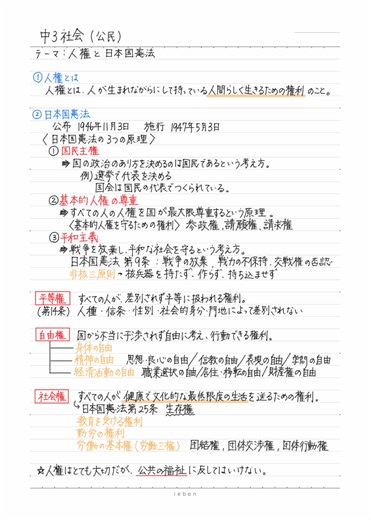 中3社会（公民）
テーマ：人権と日本国憲法
①人権とは
人権とは、人が生まれながらにして持っている人間らしく生きるための権利のこと。
②日本国憲法
公布 1946年11月3日 施行 1947年5月3日
〈日本国憲法の3つの原理〉
①国民主権
⇒国の政治のあり方を決めるのは国民であるという考え方。
例）選挙で代表を決める
国会は国民の代表でつくられている。
②基本的人権の尊重
⇒すべての人の人権を国が最大限尊重するという原理。
〈基本的人権を守るための権利〉参政権、請願権、請求権
③平和主義
⇒戦争を放棄し、平和な社会を守るという考え方。
日本国憲法 第9条：戦争の放棄、戦力の不保持、交戦権の否認
非核三原則→核兵器を持たず、作らず、持ち込ませず
平等権 すべての人が、差別されず平等に扱われる権利。
（第14条）人種・信条・性別・社会的身分・門地によって差別されない
自由権 国から不当に干渉されず自由に考え、行動できる権利。
身体の自由
精神の自由 思想・良心の自由／信教の自由／表現の自由／学問の自由
経済活動の自由 職業選択の自由／居住・移転の自由／財産権の自由
社会権 すべての人が健康で文化的な最低限度の生活を送るための権利。
↳日本国憲法第25条 生存権
教育を受ける権利
勤労の権利
労働の基本権（労働三権） 団結権、団体交渉権、団体行動権
☆人権はとても大切だが、公共の福祉に反してはいけない。
ieben